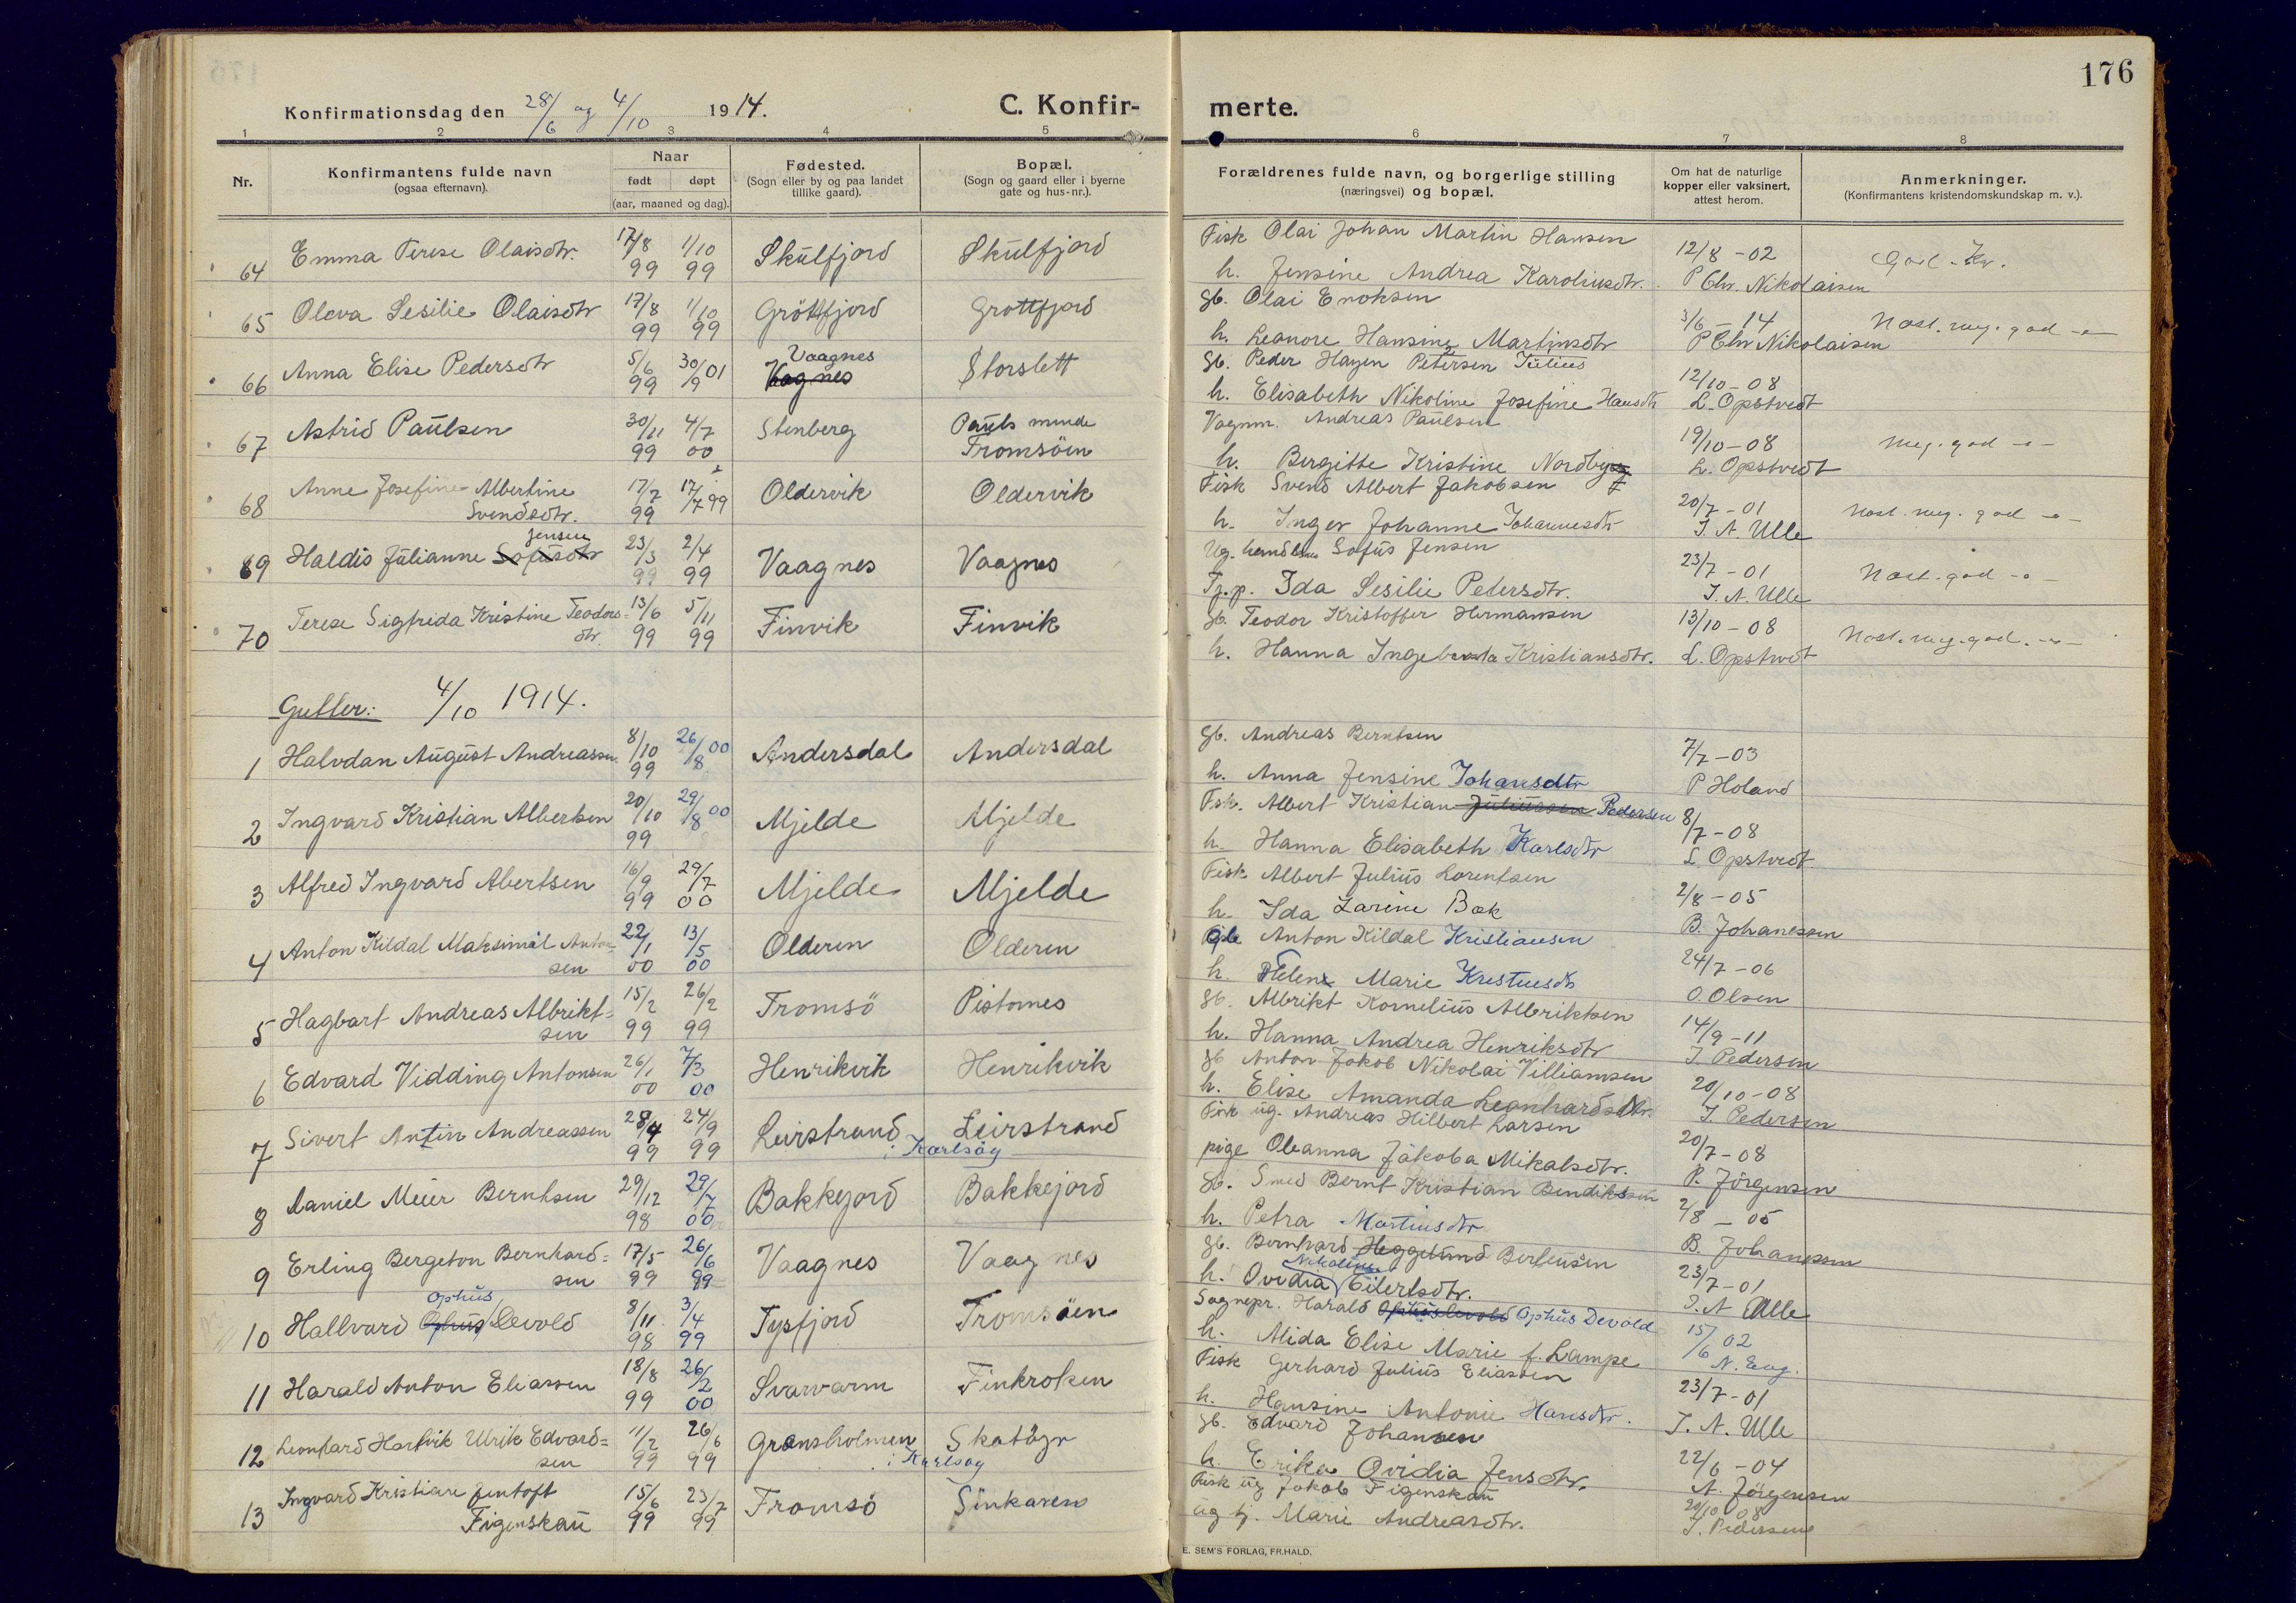 176
Konfirmationsdag den 28/6 og 4/10 1914.
C. Konfirmerte.
1 2 3 4 5 6 7 8
Nr.
Konfirmantens fulde navn
(ogsaa efternavn).
Naar
født døpt
(aar, maaned og dag).
Fødested.
(Sogn eller by og paa landet
tillike gaard).
Bopæl.
(Sogn og gaard eller i byerne
gate og hus-nr.).
Forældrenes fulde navn, og borgerlige stilling
(næringsvei) og bopæl.
Om hat de naturlige
kopper eller vaksinert,
attest herom.
Anmerkninger.
(Konfirmantens kristendomskundskap m. v.).
64 Emma Terese Olaisdtr. 17/8 99 1/10 99 Skulfjord Skulfjord
Fisk Olai Johan Martin Hansen
h. Jensine Andrea Karoliusdtr. 12/8 - 02 P Chr. Nikolaisen God - Kr.
65 Oleva Sesilie Olaisdtr 17/8 99 1/10 99 Gröttfjord Grottfjord
gb. Olai Enoksen
h. Leanore Hansine Martinsdtr 3/6 - 14 P Chr Nikolaisen Nost. meg. god -"-
66 Anna Elise Pedersdtr 5/6 99 30/9 01 Vaagnes Vagnes Storslett
gb. Peder Hagen Petersen Julius
h. Elisabeth Nikoline Josefine Hansdtr 12/10 - 08 L. Opstvedt
67 Astrid Paulsen 30/11 99 4/7 00 Stenberg Pauls minde Tromsöen
Vognm. Andreas Paulsen
h. Bergitte Kristine Nordby 19/10 - 08 L. Opstvedt Meg. god -"-
68 Anne Josefine Albertine
Svendsdtr. 17/7 99 17/7 99 Oldervik Oldervik
Fisk Svend Albert Jakobsen
h. Inger Johanne Johannesdtr 20/7 - 01 J. A. Ulle Nost. meg. god -"-
69 Haldis Julianne Sofusdtr Jensen 23/3 99 2/4 99 Vaagnes Vaagnes
Ug. handlm Sofus Jensen
Tj. p. Ida Sesilie Pedersdtr. 23/7 - 01 J. A. Ulle Nost. god -"-
70 Terese Sigfrida Kristine Teodors-
dtr. 13/6 99 5/11 99 Finvik Finvik
gb. Teodor Kristoffer Hermansen
h. Hanna Ingeborda Kristiansdtr. 13/10 - 08 L. Opstvedt Nost. meg. god. -"-
Gutter: 4/10 1914.
1 Halvdan August Andreassen 8/10 99 26/8 00 Andersdal Andersdal
gb. Andreas Berntsen
h. Anna Jensine Johansdtr 7/7 - 03 P Holand
2 Ingvard Kristian Albertsen 20/10 99 29/8 00 Mjelde Mjelde
Fisk. Albert Kristian Juliussen Pedersen
h. Hanna Elisabeth Karlsdtr 8/7 - 08 L. Opstvedt
3 Alfred Ingvard Abertsen 16/9 99 29/7 00 Mjelde Mjelde
Fisk Albert Julius Lorentsen
h. Ida Larine Bæk 2/8 - 05 B. Johanessen
4 Anton Kildal Maksimal Anton-
sen 22/1 00 13/5 00 Olderen Olderen
Gb Anton Kildal Kristiansen
h. Helene Marie Krestensdtr 24/7 - 06 O. Olsen
5 Hagbart Andreas Albrikt-
sen 15/2 99 26/2 99 Tromsö Pistornes
gb. Albrikt Kornelius Albriktsen
h. Hanna Andrea Henriksdtr 14/9 - 11 J. Pedersen
6 Edvard Vidding Antonsen 26/1 00 7/3 00 Henrikvik Henrikvik
gb Anton Jakob Nikolai Villiamsen
h. Elise Amanda Leonhardsdtr. 20/10 - 08 J. Pedersen
7 Sivert Antin Andreassen 28/4 99 24/9 99 Leirstrand i Karlsöy Leirstrand
Fisk ug. Andreas Hilbert Larsen
pige Oleanna Jakoba Mikalsdtr. 20/7 - 08 P. Jörgensen
8 Daniel Meier Berntsen 29/12 98 29/7 00 Bakkejord Bakkejord
gb. Smed Bernt Kristian Bendiksen
h. Petra Martinsdtr 2/8 - 05 B. Johanessen
9 Erling Bergeton Bernhard-
sen 17/5 99 26/6 99 Vaagnes Vaagnes
gb. Bernhard Heggelund Berteusen
h. Ovidia Nikoline Eilertsdtr. 23/7 - 01 J. A Ulle
10 Hallvard Ophus Ophus Devold 8/11 98 3/4 99 Tysfjord Tromsöen
Sognepr. Harald Ophus Devold
h. Alida Elise Marie f. Lampe 15/6 02 N. Eng.
11 Harald Anton Eliassen 18/8 99 26/2 00 Svarvarm Finkroken
Fisk Gerhard Julius Eliassen
h. Hansine Antonie Hansdtr. 23/7 - 01 J. A. Ulle
12 Leonhard Hartvik Ulrik Edvard-
sen 11/2 99 26/6 99 Grønsholmen i Karlsöy Skatöyr
gb. Edvard Johansen
h. Erika Ovidia Jensdtr. 22/6 - 04 A. Jörgensen
13 Ingvard Kristian Jentoft
Figenskau 15/6 99 23/7 99 Tromsö Sinkaren
Fisk ug Jakob Figenskau
ug tj. Marie Andreasdtr. 20/10 08 J. Pedersen
E. SEM'S FORLAG, FR.HALD.